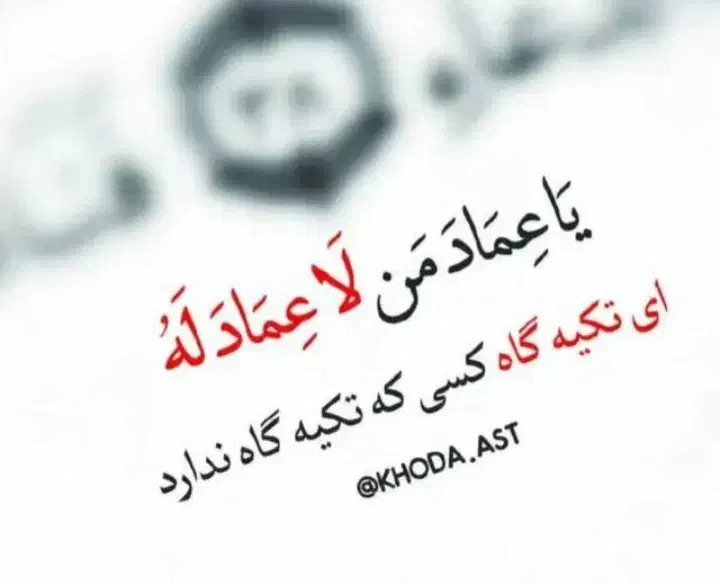 يَا عِمَادَ مَن لَا عِمَادَ لَهُ
ای تکیه گاه کسی که تکیه گاه ندارد
@KHODA.AST